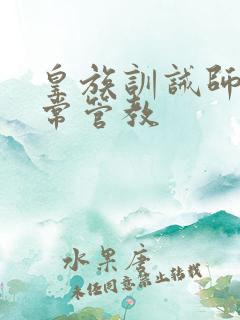 皇族訓誡師
常管教
水果唐
未经同意禁止转载